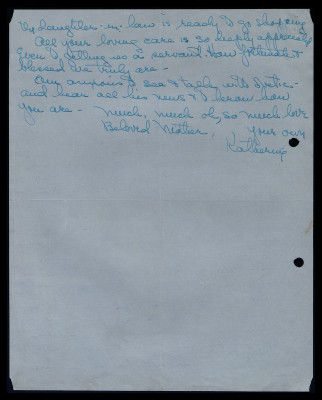 My daughter-in-law is ready to go shopping
All your loving care is so deeply appreciated
Even to getting us a servant. How fortunate &
blessed we truly are -
Am anxious to see & talk with
and hear all his news & to know how
you are - Much, much oh, so much love
Beloved Mother, Your own
Katherine